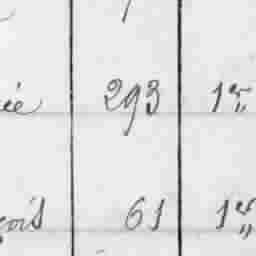 ée 293 1er
çois 61 1er